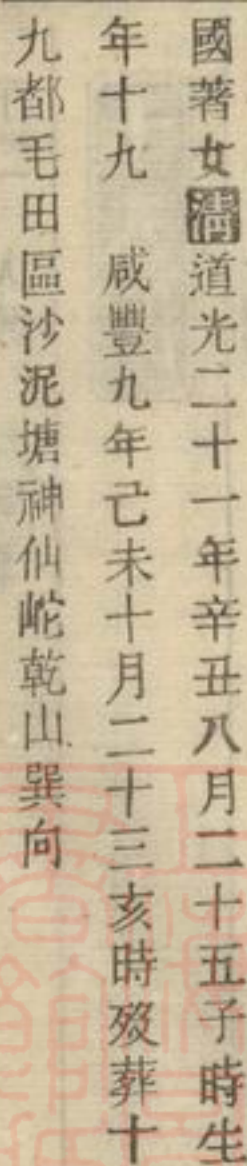 國著女濤道光二十一年辛丑八月二十五子時生
年十九　咸豐九年己未十月二十三亥時歿葬十
九都毛田區沙泥塘神仙岮乾山巽向